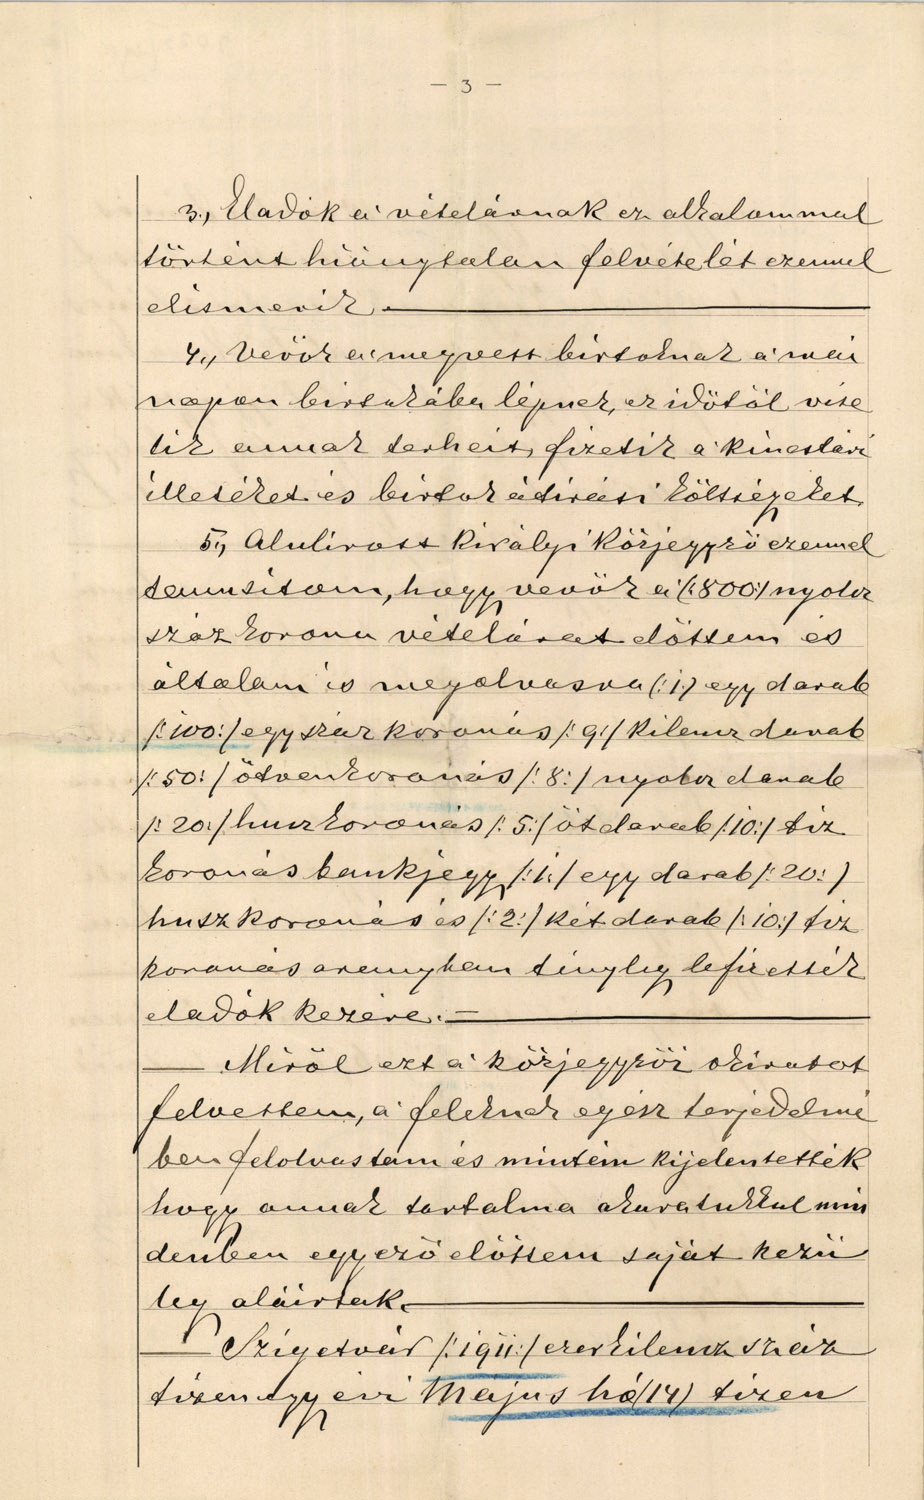 — 3 —
3., Eladók a' vételárnak ez alkalommal
történt hiánytalan felvételét ezennel
elismerik.
4., Vevők a' megvett birtoknak a' mai
napon birtokába lépnek, ez időtől vise
lik annak terheit, fizetik a' kincstári
illetéket és birtok átirási költségeket.
5., Alulirott királyi közjegyző ezennel
tanusitom, hogy vevők a' (:800:) nyolcz
száz korona vételárat előttem és
általam is megolvasva (:1:) egy darab
/:100:/ egyszáz koronás /:9:/ kilencz darab
/:50:/ ötvenkoronás /:8:/ nyolcz darab
/:20:/ huszkoronás /:5:/ öt darab /:10:/ tiz
koronás bankjegy /:1:/ egy darab /:20:/
husz koronás és /:2:/ két darab /:10:/ tiz
koronás aranyban tényleg lefizették
eladók kezére. —
— Miről ezt a' közjegyzői okiratot
felvettem, a' feleknek egész terjedelmé
ben felolvastam és miután kijelentették
hogy annak tartalma akaratukkal min
denben egyező előttem saját kezü
leg aláirták.
— Szigetvár /:1911:/ ezerkilencz száz
tizenegy évi Május hó (14) tizen